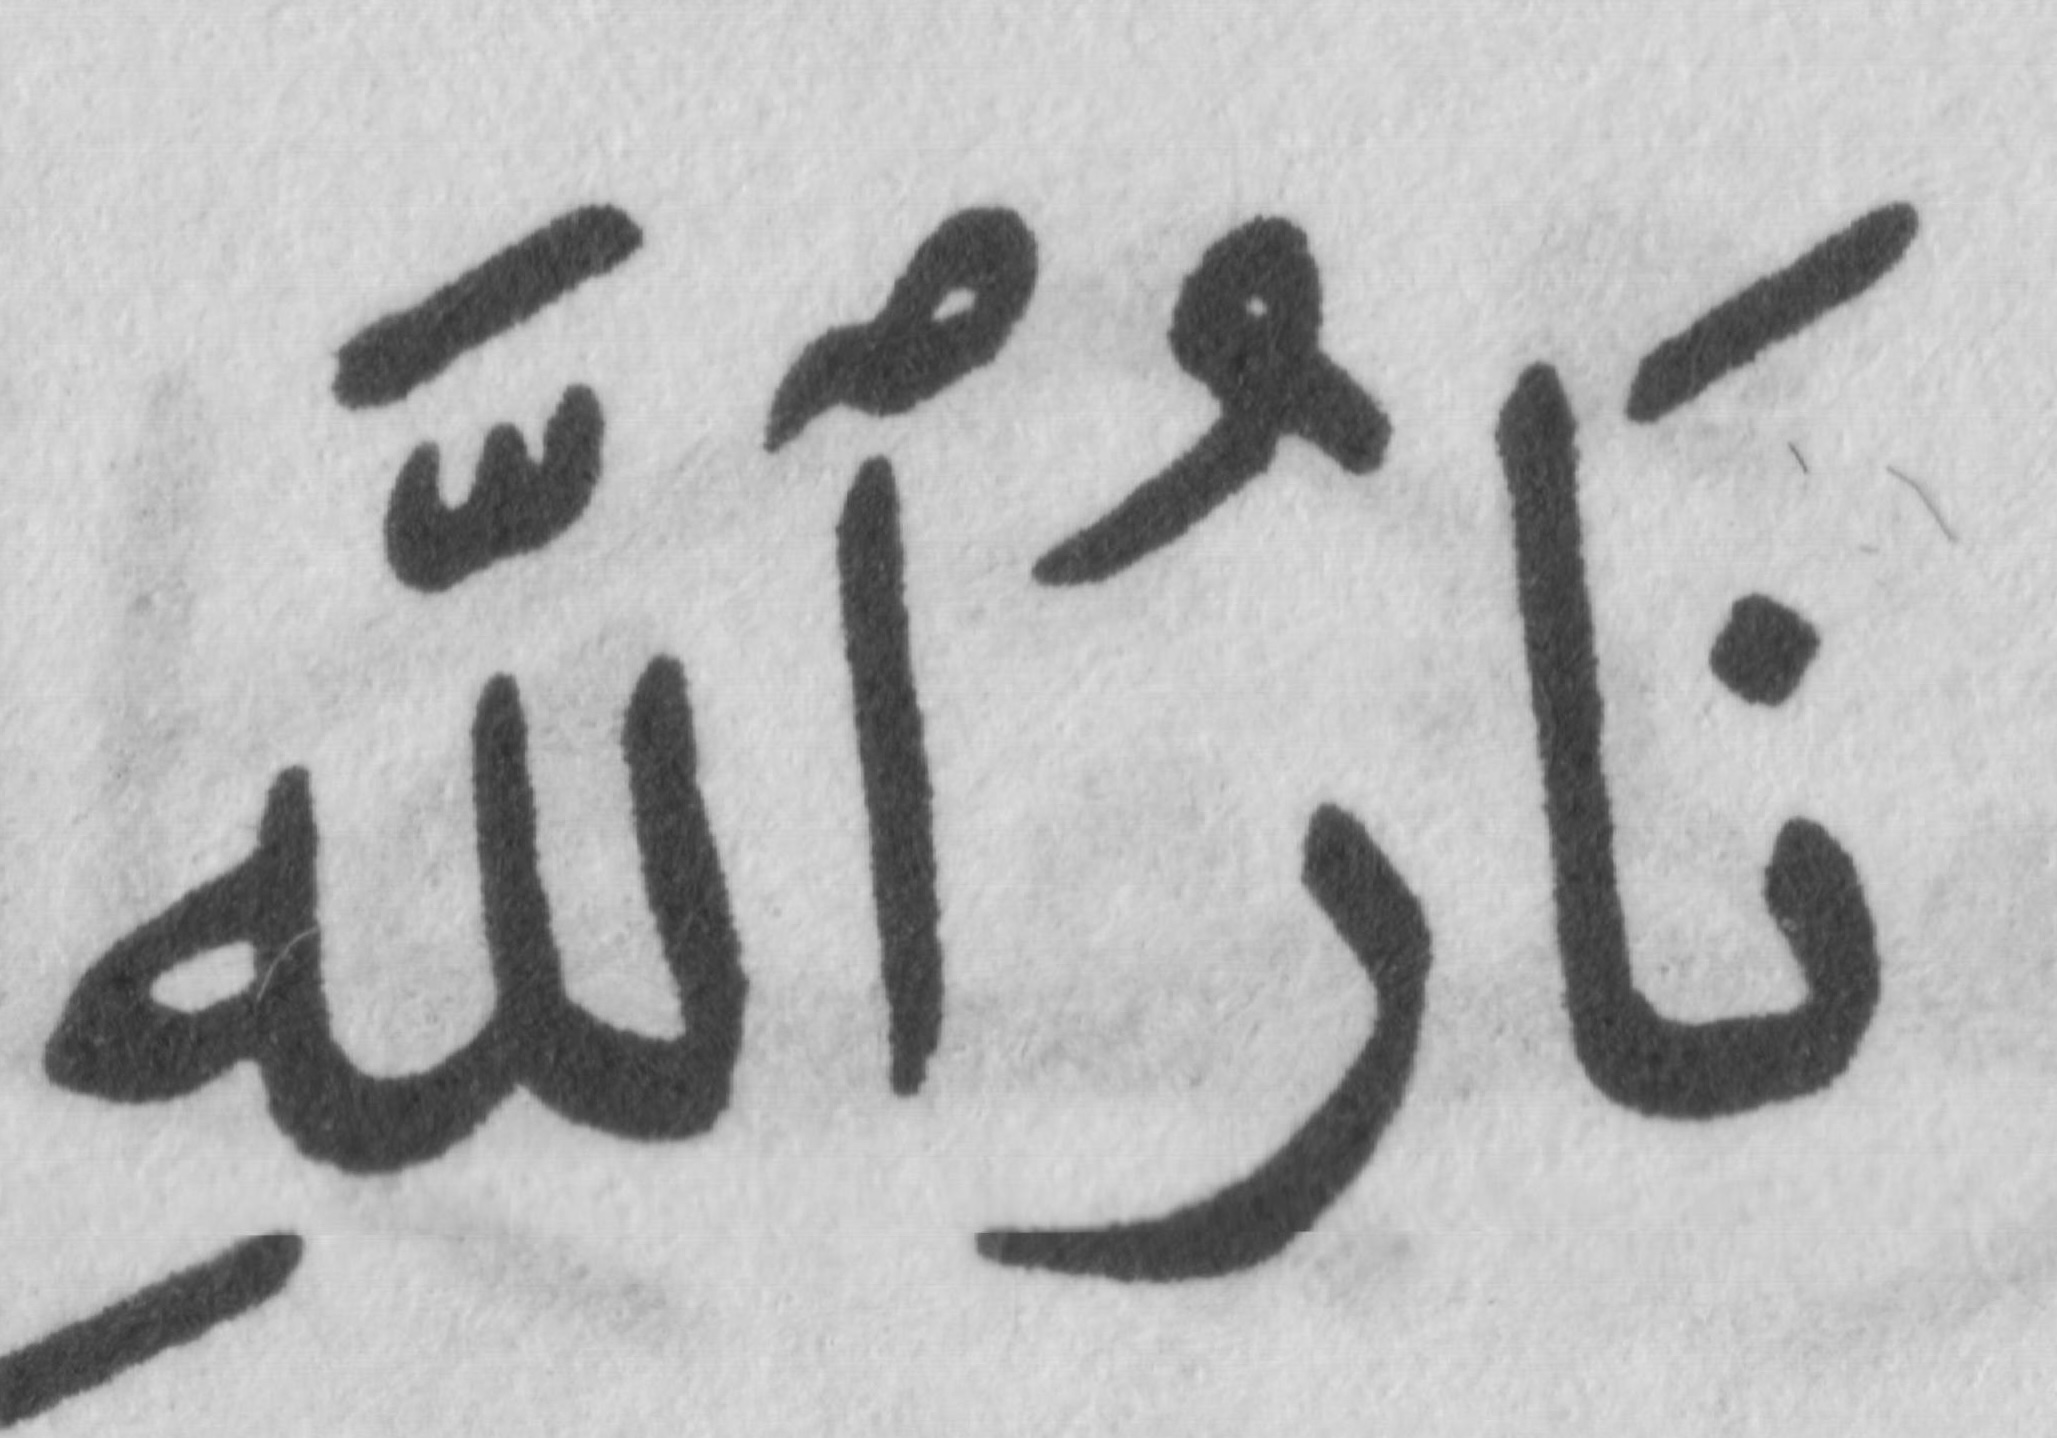 نَارُ ٱللَّهِ